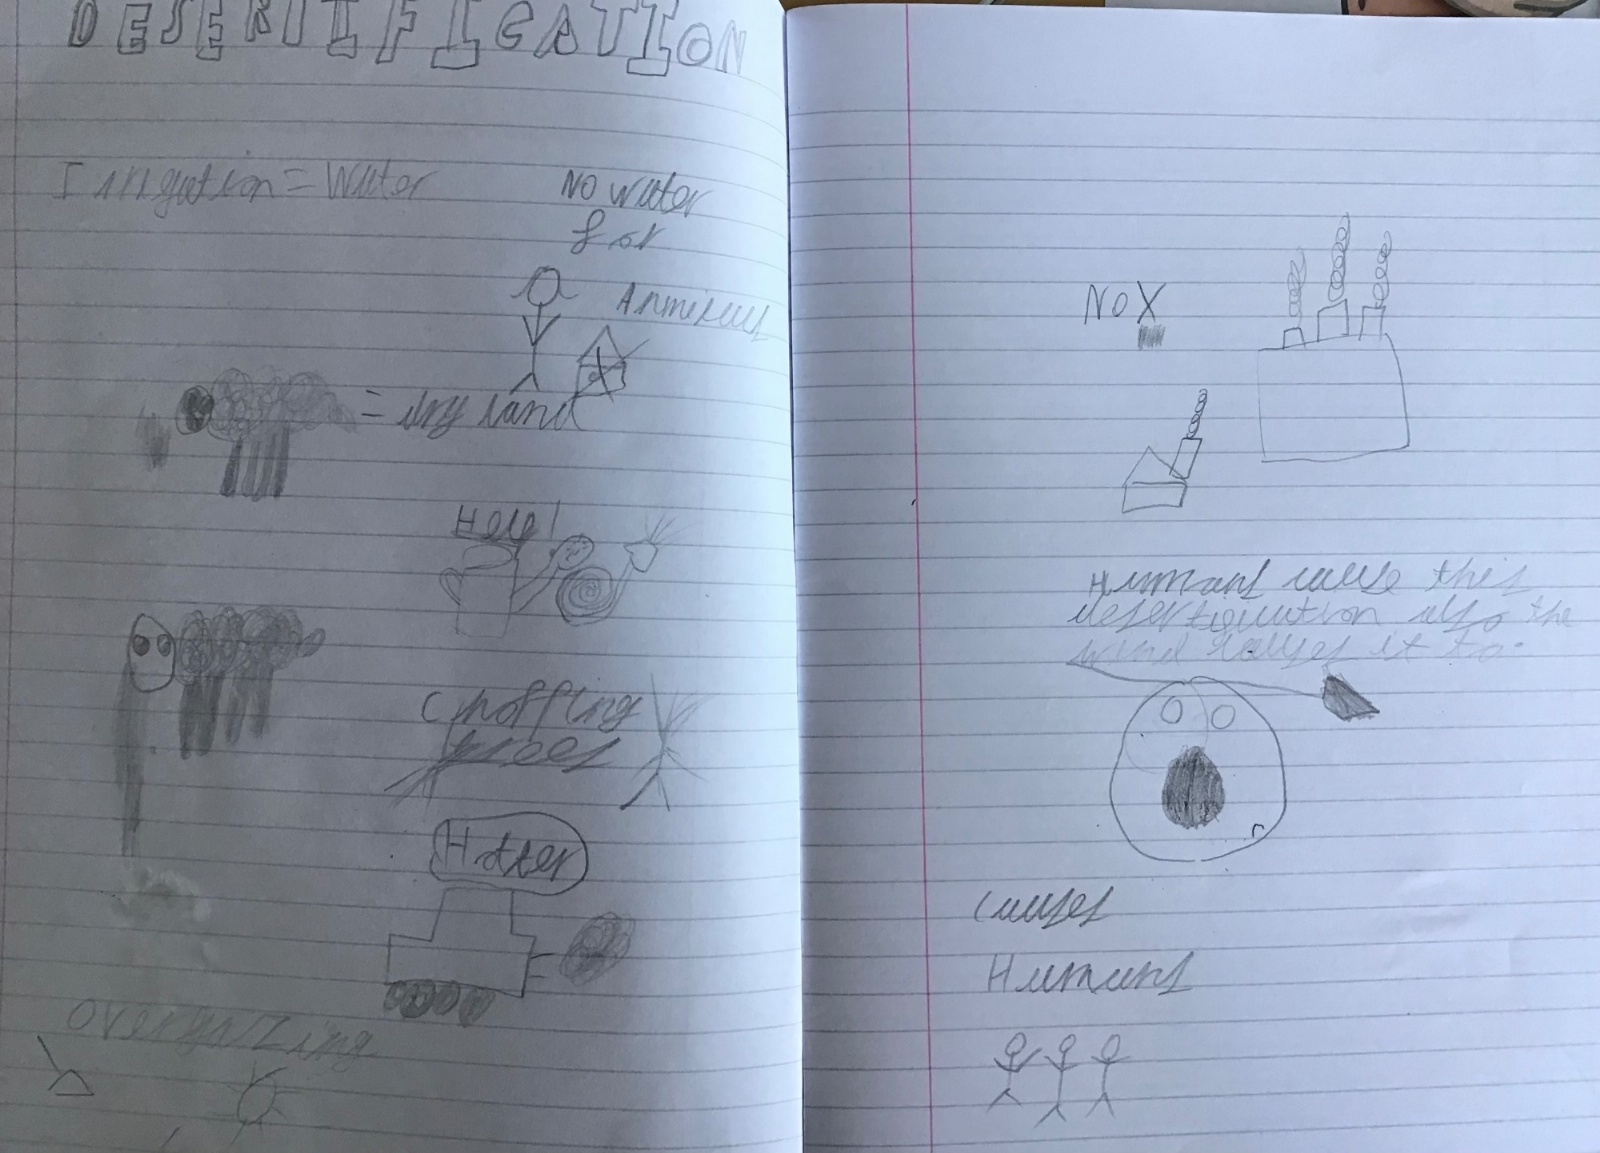 DESERTIFICATION
Irrigation = Water
No water
for
Animals
= dry land
Help!
Chopping
trees
Hotter
Overgrazing
NOX
Humans cause this
desertification also the
wind causes it to.
Causes
Humans